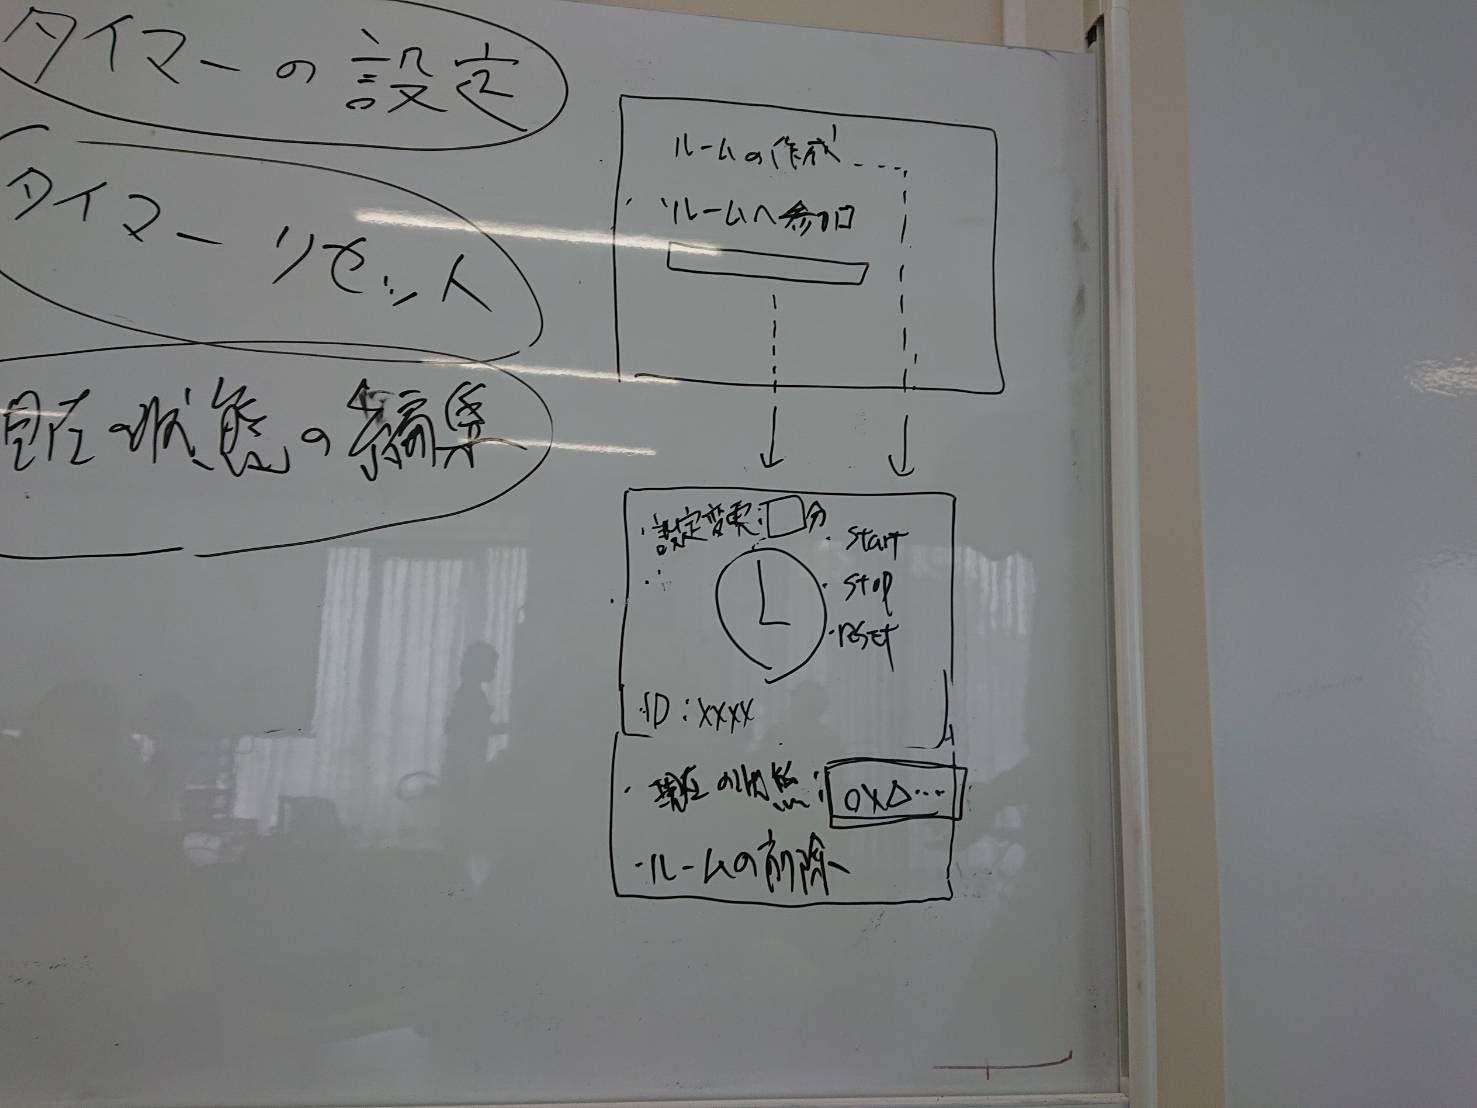 タイマーの設定
タイマーリセット
現在の状態の編集
ルームの作成
ルームへ参加
・設定変更：□分
・start
・stop
・reset
・ID：xxxx
・現在の状態：○×△…
・ルームの削除